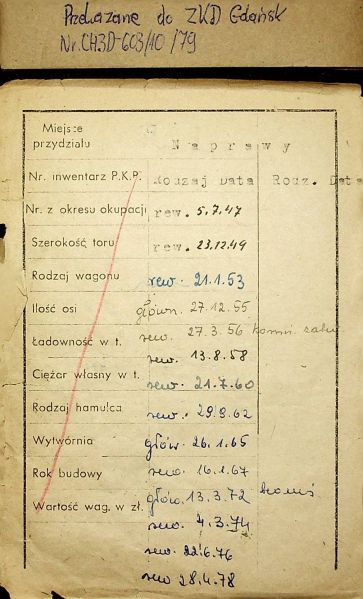 Przekazane do ZKD Gdańsk
Nr. CH3D-603/10/79
Miejsce przydziału
Naprawy
Nr. inwentarz P.K.P. Rodzaj Data Rodz. Data
Nr. z okresu okupacji rew. 5.7.47
Szerokość toru rew. 23.12.49
Rodzaj wagonu rew. 21.1.53
Ilość osi główn. 27.12.55
rew. 27.3.56
Ładowność w t. rew. 13.8.58
Ciężar własny w t. rew. 21.7.60
Rodzaj hamulca rew. 29.9.62
Wytwórnia głów. 26.1.65
Rok budowy rew. 16.1.67
głów. 13.3.72
Wartość wag. w zł. rew. 4.3.74
rew. 22.6.76
rew 28.4.78